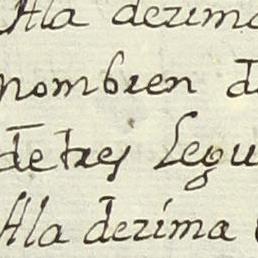 Ala dezima
nombren d
de tres Legu
Ala dezima